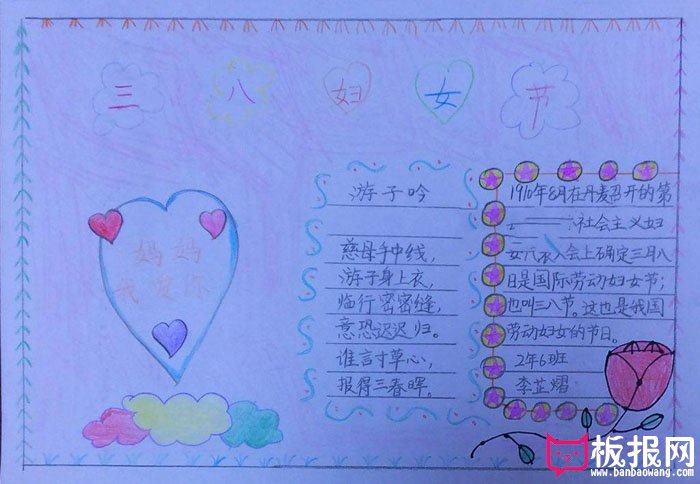 三八妇女节
妈妈
我爱你
游子吟
慈母手中线，
游子身上衣，
临行密密缝，
意恐迟迟归。
谁言寸草心，
报得三春晖。
1910年8月在丹麦召开的第
社会主义妇
女
会上确定三月八
日是国际劳动妇女节；
也叫三八节。这也是我国
劳动妇女的节日。
2年6班
李芷熠
板报网
www.banbaowang.com